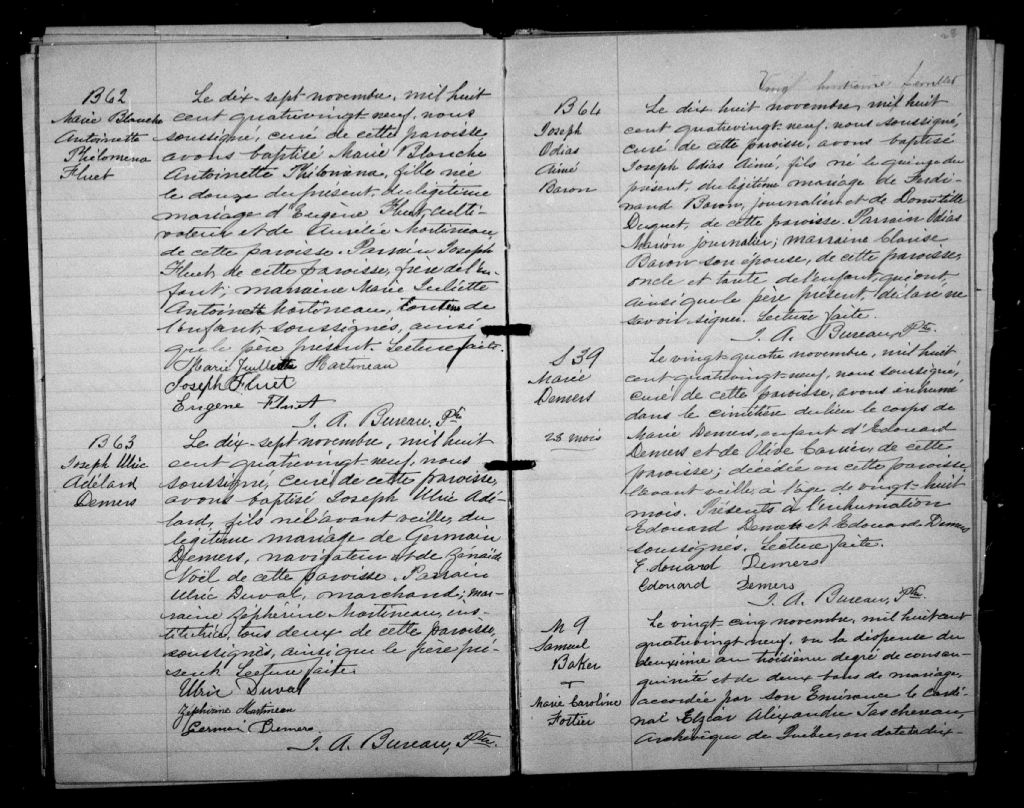 B 62
Marie Blanche
Antoinette
Philomena
Fluet
Le dix-sept novembre, mil huit
cent quatrevingt-neuf, nous
soussigné, curé de cette paroisse,
avons baptisé Marie Blanche
Antoinette Philomena, fille née
le douze du présent, du légitime
mariage d'Eugène Fluet, culti-
vateur et de Aurélie Martineau,
de cette paroisse. Parrain Joseph
Fluet de cette paroisse, frère de l'en-
fant; marraine Marie Juliette
Antoinette Martineau, de
l'enfant, soussignés, ainsi
que le père présent. Lecture faite.
Marie Juliette Martineau
Joseph Fluet
Eugène Fluet
J. A. Bureau, Ptre
B 63
Joseph Ulric
Adélard
Demers
Le dix-sept novembre, mil huit
cent quatrevingt-neuf, nous
soussigné, curé de cette paroisse,
avons baptisé Joseph Ulric Adé-
lard, fils né l'avant veille, du
légitime mariage de Germain
Demers, navigateur et de Zénaïde
Noël de cette paroisse. Parrain
Ulric Duval, marchand; mar-
raine Zéphirine Martineau, ins-
titutrice, tous deux de cette paroisse,
soussignés, ainsi que le père pré-
sent. Lecture faite.
Ulric Duval
Zéphirine Martineau
Germain Demers
J. A. Bureau, Ptre
28
Vingt huitième feuillet
B 64
Joseph
Odias
Aimé
Baron
Le dix huit novembre, mil huit
cent quatrevingt-neuf, nous soussigné,
curé de cette paroisse, avons baptisé
Joseph Odias Aimé, fils né le quinze du
présent, du légitime mariage de Ferdi-
nand Baron, journalier et de Domitille
Duquet, de cette paroisse. Parrain Odias
Marion journalier; marraine
Baron son épouse, de cette paroisse,
oncle et tante de l'enfant, qui ont
ainsi que le père présent, déclaré ne
savoir signer. Lecture faite.
J. A. Bureau, Ptre
S 39
Marie
Demers
28 mois
Le vingt-quatre novembre, mil huit
cent quatrevingt-neuf, nous soussigné,
curé de cette paroisse, avons inhumé
dans le cimetière du lieu le corps de
Marie Demers, enfant d'Edouard
Demers et de Alide Carrier, de cette
paroisse; décédée en cette paroisse,
l'avant veille, à l'âge de vingt-huit
mois. Présents à l'inhumation
Edouard Demers et Edouard Demers
soussignés. Lecture faite.
Edouard Demers
Edouard Demers
J. A. Bureau, Ptre
M 9
Samuel
Baker
+
Marie Caroline
Fortier
Le vingt-cinq novembre, mil huit cent
quatrevingt-neuf, vu la dispense du
deuxième au troisième degré de consan-
guinité et de deux bans de mariage,
accordée par son Eminence le cardi-
nal Elzéar Alexandre Taschereau,
Archevêque de Québec, en date du dix-